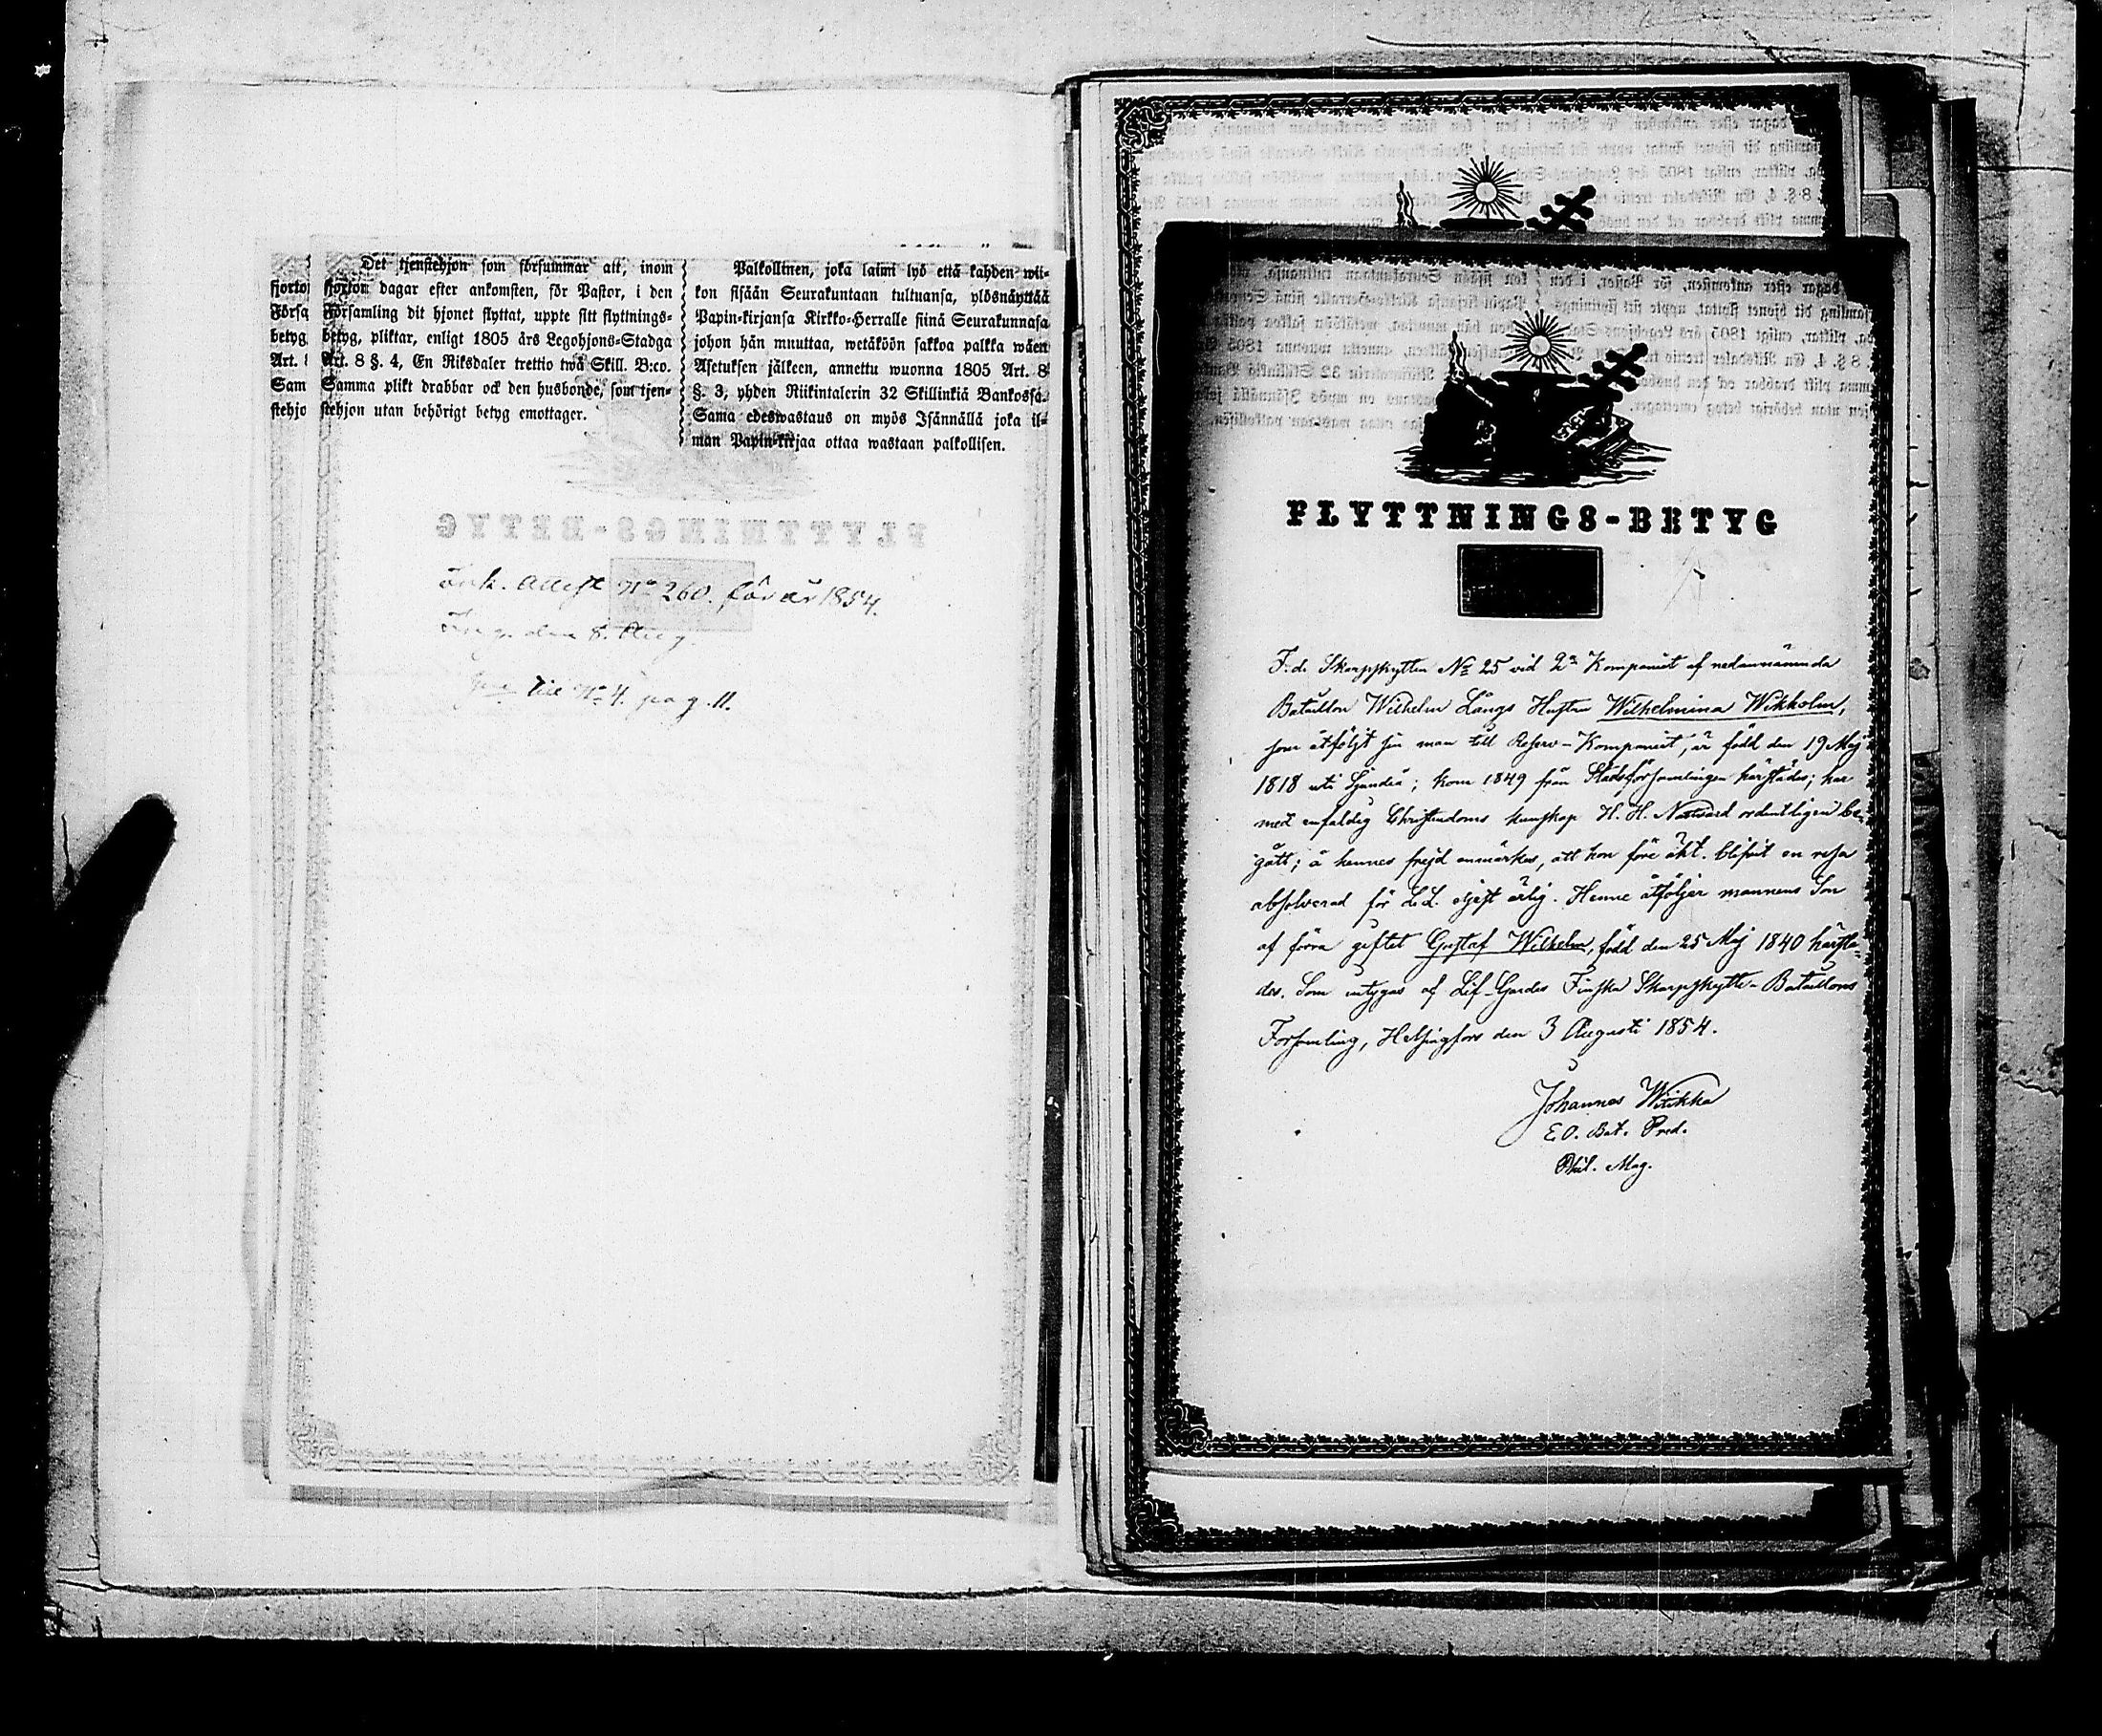 Det tjenstehjon som försummar att, inom
fjorton dagar efter ankomsten, för Pastor, i den
Församling dit hjonet flyttat, uppte sitt flyttnings-
betyg, pliktar, enligt 1805 års Legohjons-Stadga
Art. 8 §. 4, En Riksdaler trettio twå Skill. B:co.
Samma plikt drabbar ock den husbonde, som tjen-
stehjon utan behörigt betyg emottager.
Palkollinen, joka laimi lyö että kahden wii-
kon sisään Seurakuntaan tultuansa, ylösnäyttää
Papin-kirjansa Kirkko-Herralle siinä Seurakunnasa
johon hän muuttaa, wetäköön sakkoa palkka wäen
Asetuksen jälkeen, annettu wuonna 1805 Art. 8
§. 3, yhden Riikintalerin 32 Skillinkiä Bankossa.
Sama edeswastaus on myös Isännällä joka il-
man Papin-kirjaa ottaa wastaan palkollisen.
fjorto
Förså
betyg
Art. 8
Sam
stehjo
Ink. Attest No 260. för år 1854.
Ing. den 8. Aug.
till No 4. pag. 11.
FLYTTNINGS-BETYG
F.d. Skarpskytten No 25 vid 2a Kompaniet af nedannämnda
Bataillon Wilhelm Långs Hustru Wilhelmina Wikholm,
som åtföljt sin man till Reserv-Kompaniet, är född den 19 Maj
1818 uti Sjundeå; kom 1849 från Stadsförsamlingen härstädes; har
med enfaldig Christendoms kunskap H. H. Nattvard ordentligen be-
gått; å hennes frejd anmärkes, att hon före äkt. blifvit en resa
absolverad för L.L. eljest ärlig. Henne åtföljer mannens Son
af förra giftet Gustaf Wilhelm, född den 25 Maj 1840 härstä-
des. Som intygas af Lif-Gardes Finska Skarpskytte-Bataillons
Församling, Helsingfors den 3 Augusti 1854.
Johannes Witikka
E.O. Bat. Pred.
Phil. Mag.